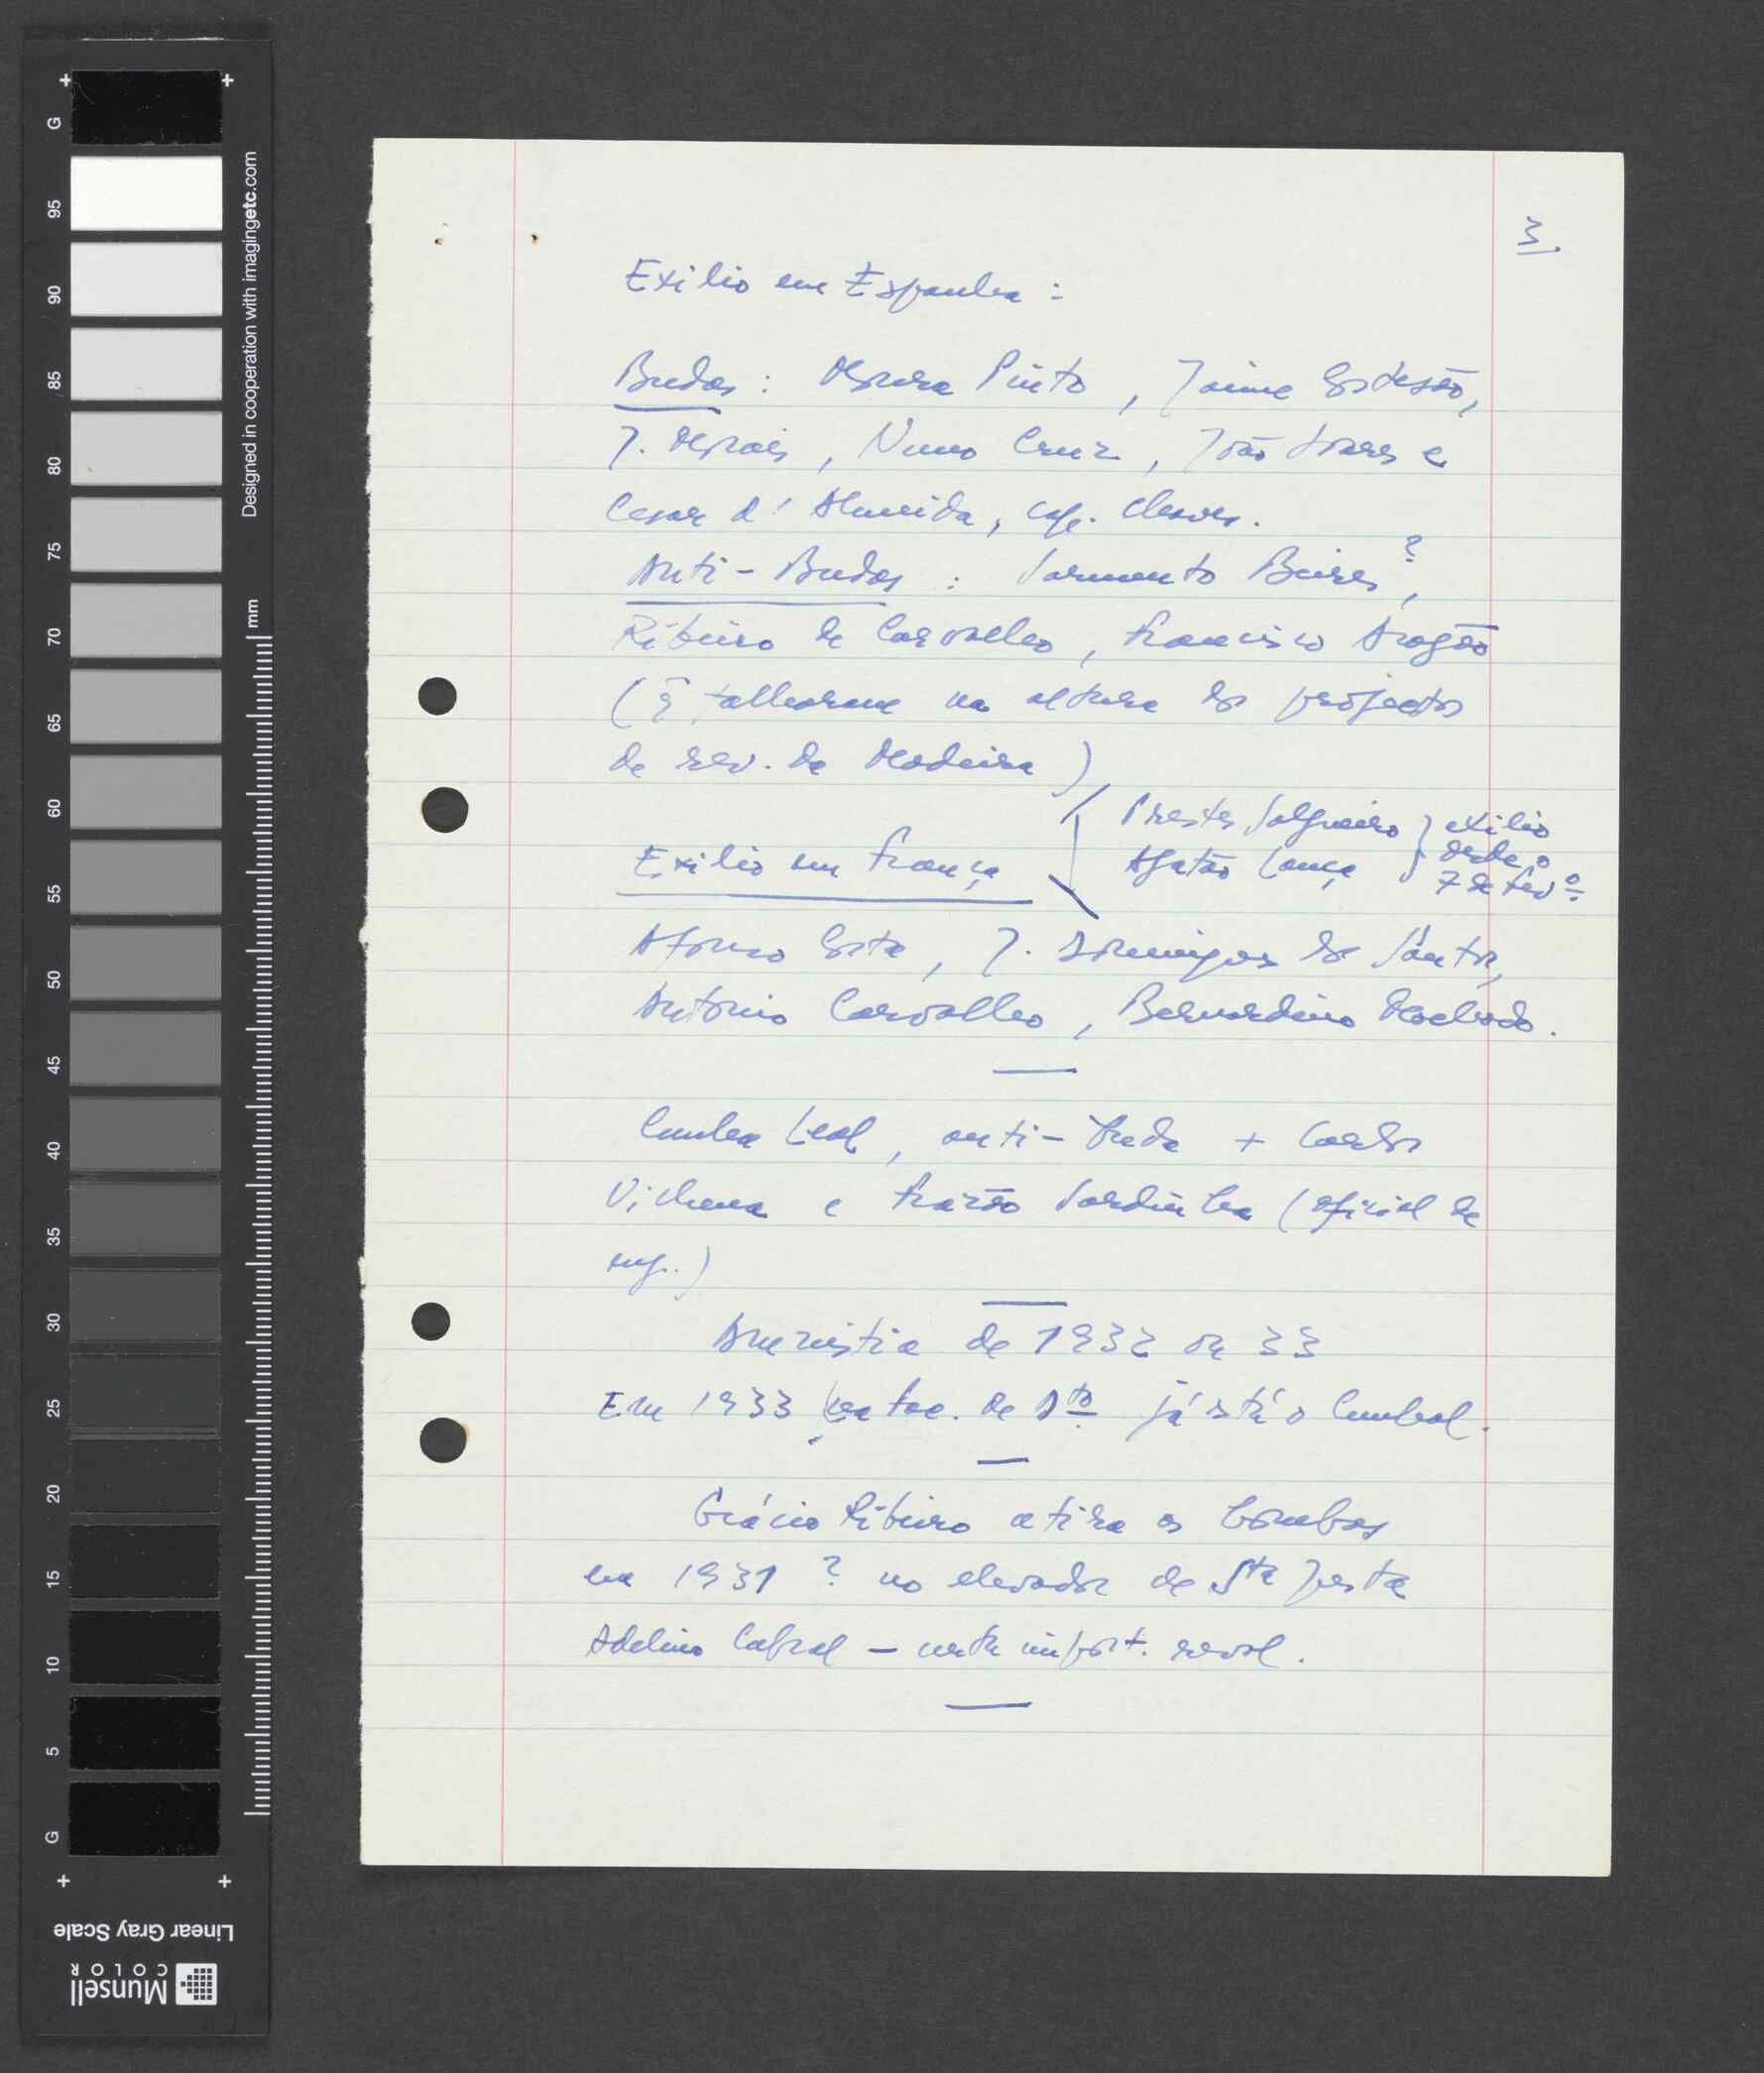 3.
Exilio em Espanha :
Budas : Moura Pinto , Jaime Cortesão,
J. Morais , Nuno Cruz , João Soares e
Cesar d'Almeida, cap. Chaves.
Anti-Budas : Sarmento Beires ?,
Ribeiro de Carvalho , Francisco Aragão
( tralharam na altura dos projectos
de rev. da Madeira )
Prestes Salgueiro } exilio
Exilio em França Agatão Lança desde o
7 de Fevº
Afonso Costa , J. Domingos dos Santos,
António Carvalho , Bernardino Machado.
Cunha Leal , anti-Buda + Carlos
Vilhena e Frazão Sardinha (oficial de
eng.)
Amnistia de 1932 ou 33
Em 1933 na fac. de Dto já está o Cunhal.
Grácio Ribeiro atira as bombas
em 1931 ? no elevador de Sta Justa
Adelino Cabral – import. revol.
G 95 90 85 80 75 70 65 60 55 50 45 40 35 30 25 20 15 10 5 G
Designed in cooperation with imagingetc.com
mm
Linear Gray Scale
Munsell
COLOR